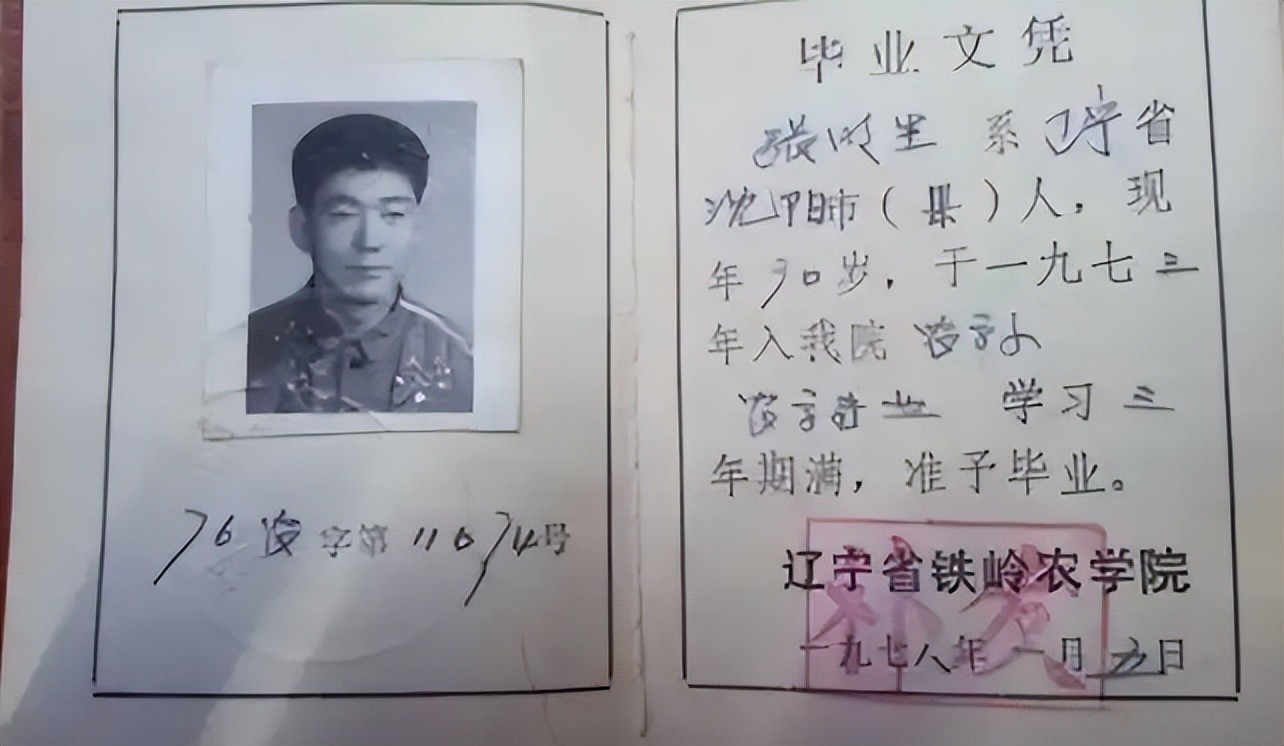 76农字第11674号
毕业文凭
张 生 系 辽宁省
沈阳市（县）人，现
年 岁，于一九七三
年入我院 农学
农学 业 学习三
年期满，准予毕业。
辽宁省铁岭农学院
一九七八年一月五日
补发